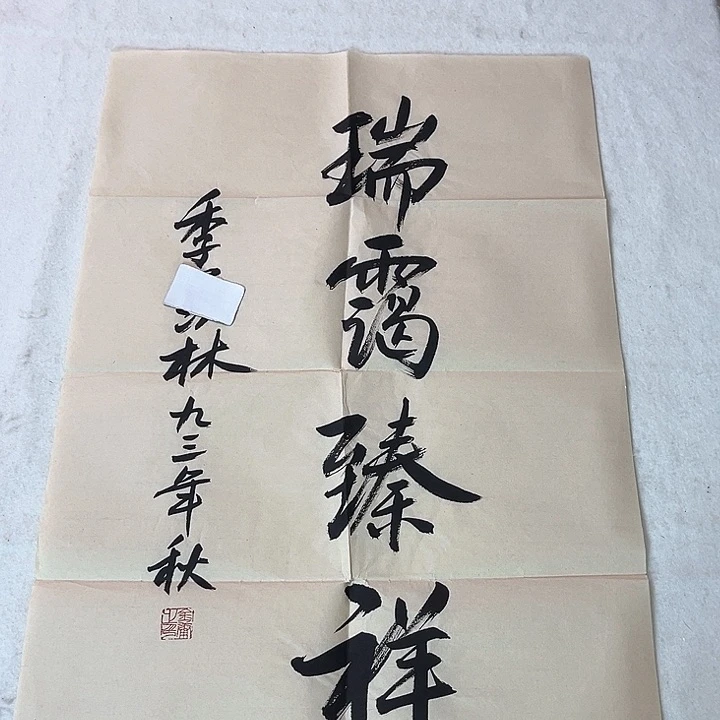 瑞靄臻祥
季 林九三年秋